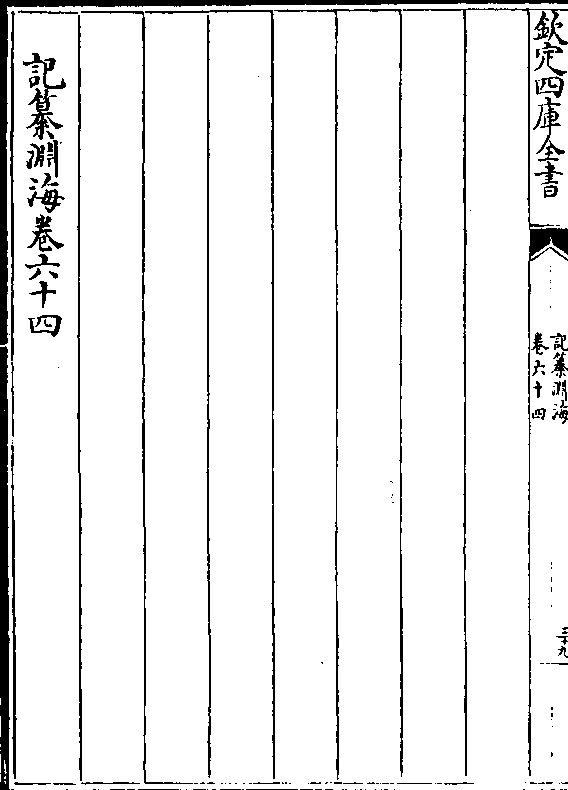 欽定四庫全書
記纂淵海
卷六十四
三十九
記纂淵海卷六十四